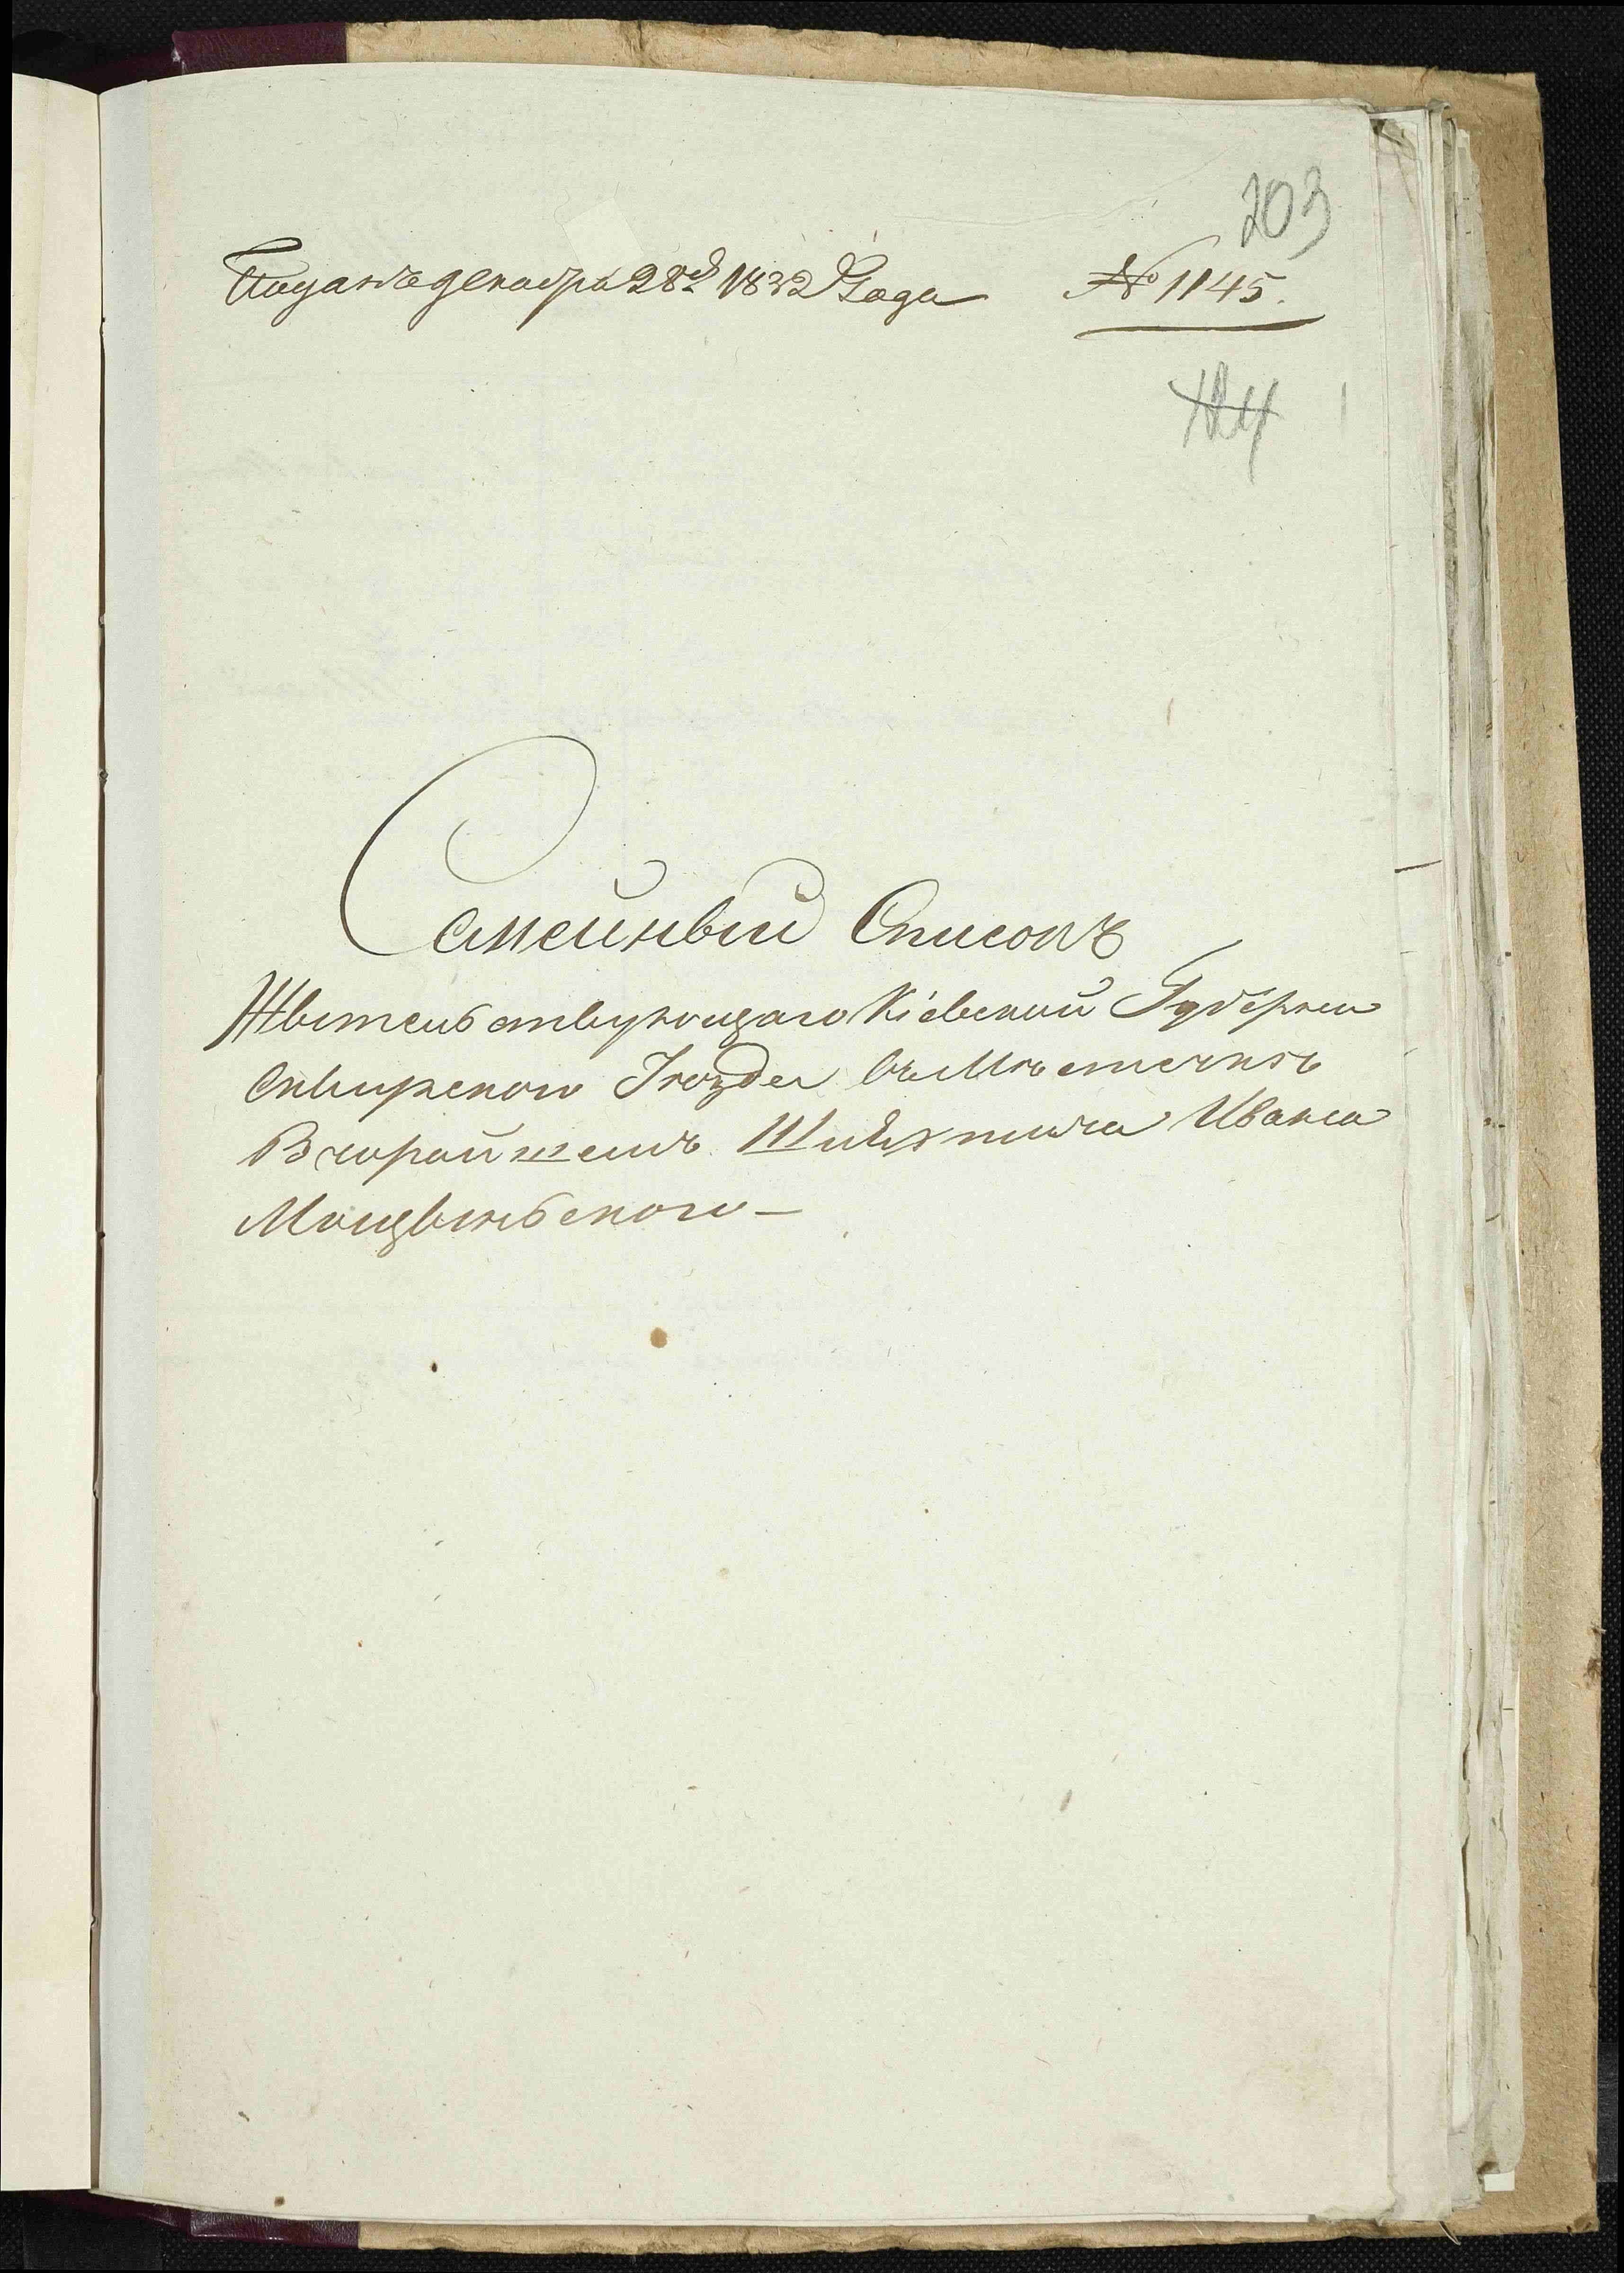 203
Поданъ декабря 28д 1832 Года № 1145.
124
Семейный Списокъ
Жытельствующаго Кіевской Губерніи
Сквирского Уезда въ Мѣстечкѣ
Вчорайшемъ Шляхтича Ивана
Мощыньского —